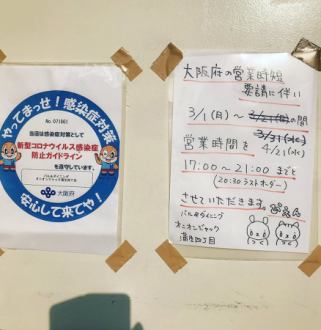 やってまっせ!感染症対策
No. 071061
当店は感染症対策として
新型コロナウイルス感染症
防止ガイドライン
を遵守しています。
バル&ダイニング
大阪府
安心して来てや!
大阪府の営業時短
要請に伴い
3/1(月)〜3/21(日)の間
3/31(水)
4/21(水)
営業時間を
17:00〜21:00までと
(20:30ラストオーダー)
させていただきます。
バル&ダイニング
オニオンジャック
蒲生四丁目